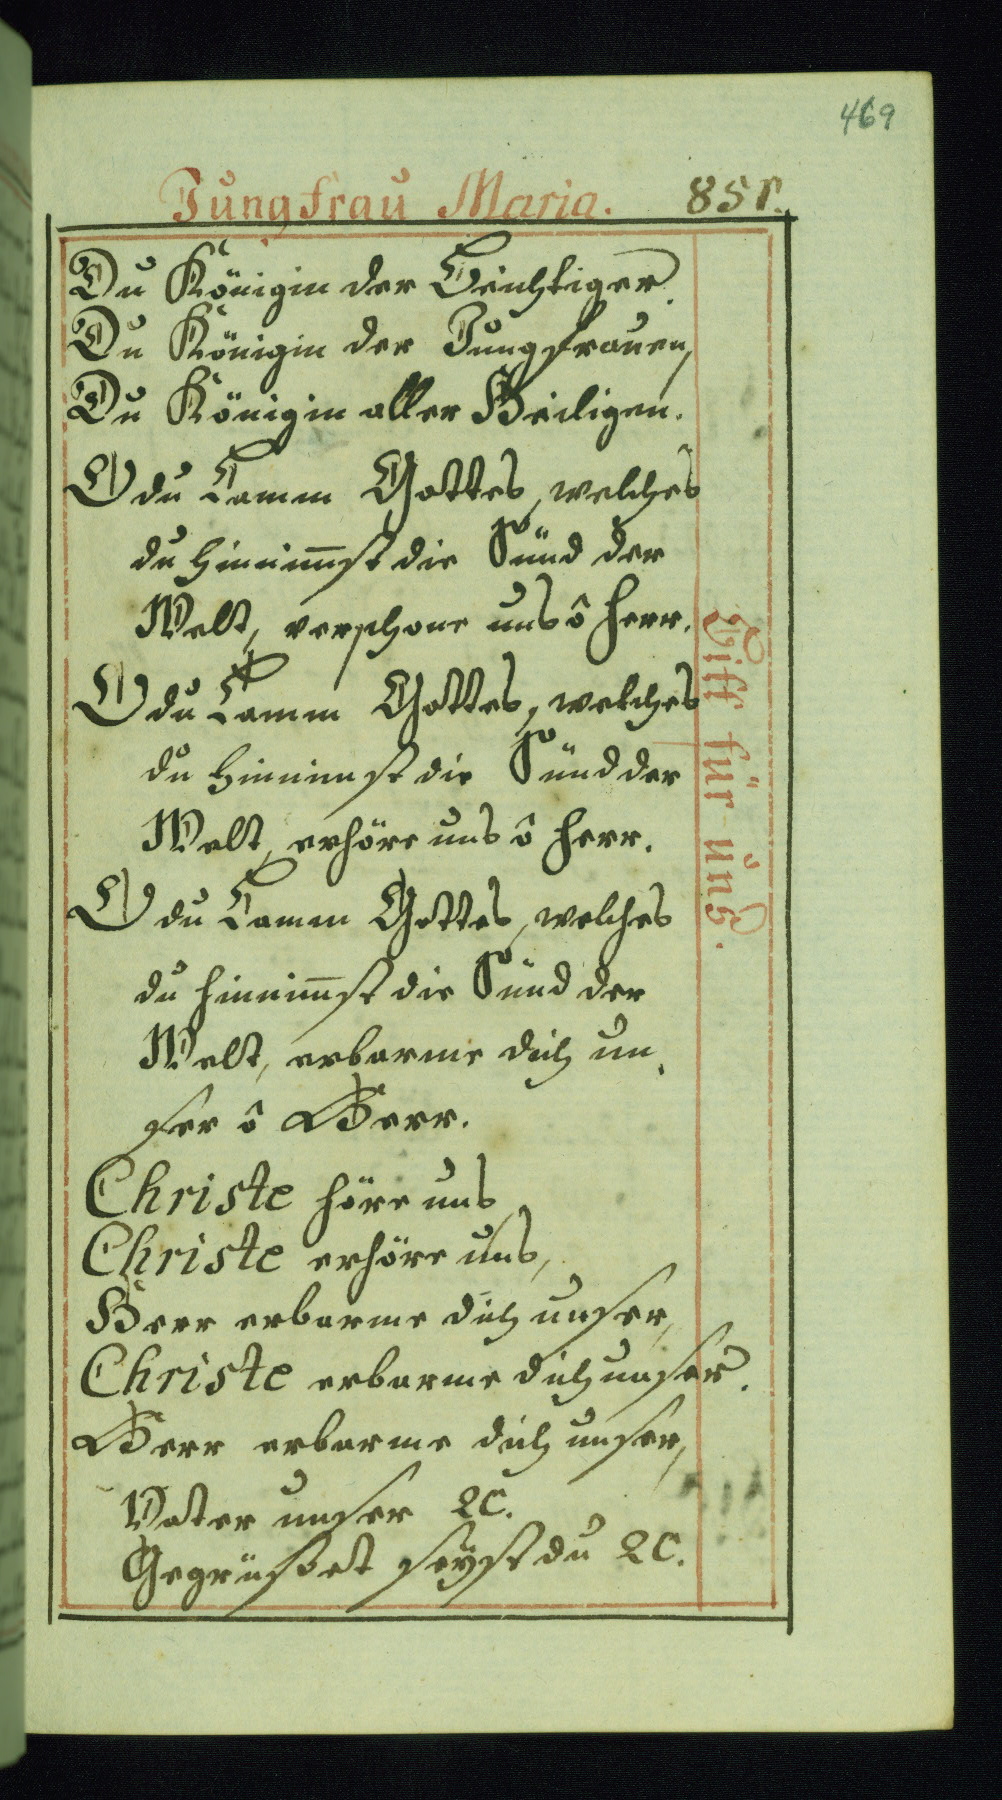 469
Jungfrau Maria. 851.
Du Königin der Beichtiger.
Du Königin der Jungfrauen,
Du Königin aller Heiligen.
O du Lamm Gottes, welches
du hinnim̅st die Sünd der
Welt, verschone uns ô Herr.
O du Lamm Gottes, welches
du hinnimst die Sünd der
Welt, erhöre uns ô Herr.
O du Lamm Gottes, welches
du hinnim̅st die Sünd der
Welt, erbarme dich un,
ser ô Herr.
Christe höre uns,
Christe erhöre uns,
Herr erbarme dich unser,
Christe erbarme dich unser.
Herr erbarme dich unser,
Vater unser ꝛc.
Gegrüsset seyst du ꝛc.
Bitt für uns.